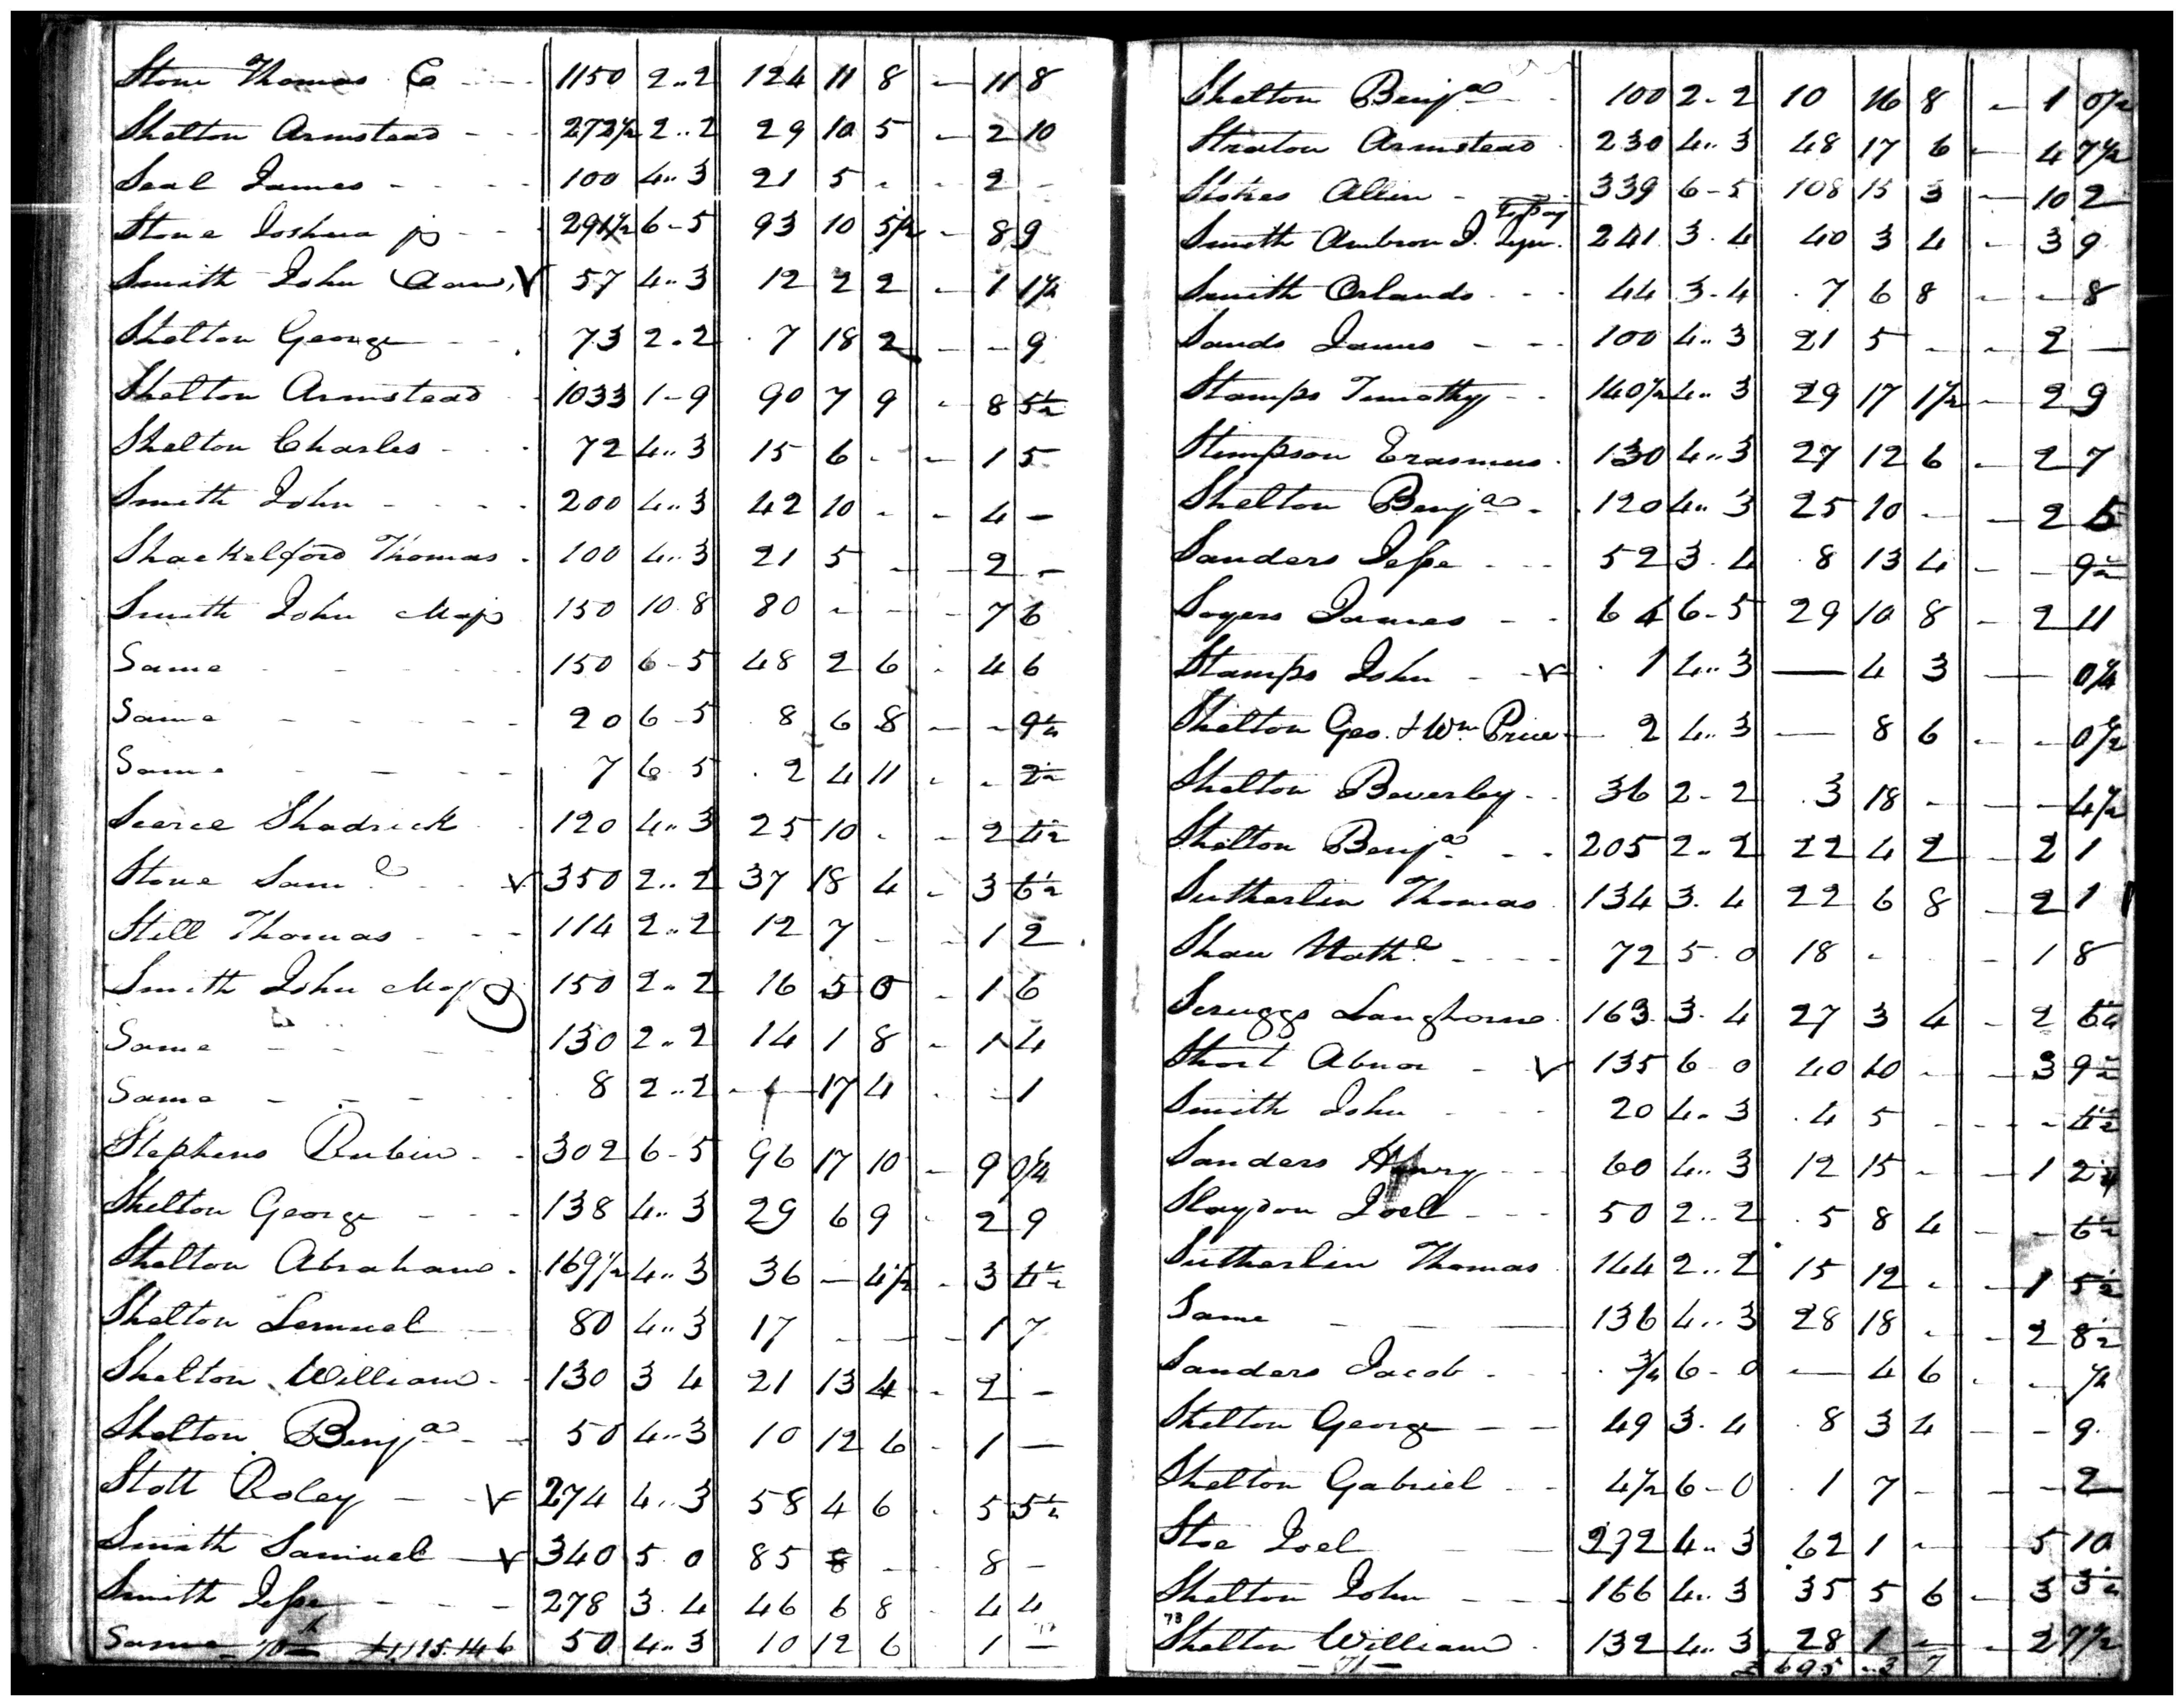 Stone Thomas C - - - 1150 2..2 124 11 8 - 11 8
Shelton Armstead - - - 272½ 2..2 29 10 5 - 2 10
Seal James - - - 100 4..3 21 5 - - 2 -
Stone Joshua jr - - 291½ 6-5 93 10 5½ - 8 9
Smith John V 57 4..3 12 2 2 - 1 1½
Shelton George - - 73 2..2 7 18 2 - - 9
Shelton Armstead 1033 1-9 90 7 9 - 8 5½
Shelton Charles - - 72 4..3 15 6 - - 1 5
Smith John - - - 200 4..3 42 10 - - 4 -
Shackelford Thomas - 100 4..3 21 5 - - 2 -
Smith John Majr 150 10 8 80 - - - 7 6
Same - - - 150 6-5 48 2 6 - 4 6
Same - - - 20 6-5 8 6 8 - - 9½
Same - - - 7 6 5 2 4 11 - - 2½
Scerce Shadrick 120 4..3 25 10 - - 2 4½
Stone Saml - - V 350 2..2 37 18 4 - 3 6½
Still Thomas - - - 114 2..2 12 7 - - 1 2
Smith John Majr 150 2..2 16 5 0 - 1 6
Same - - - 130 2..2 14 1 8 - 1 4
Same - - - 8 2..2 - 17 4 - - 1
Stephens Rubin - - 302 6-5 96 17 10 - 9 0¼
Shelton George - - - 138 4..3 29 6 9 - 2 9
Shelton Abraham - 169½ 4..3 36 - 4½ - 3 4½
Shelton Lemuel - 80 4..3 17 - - - 1 7
Shelton William - 130 3 4 21 13 4 - 2 -
Shelton Benja - - 50 4..3 10 12 6 - 1 -
Stott Roley - - V 274 4..3 58 4 6 - 5 5½
Smith Samuel - V 340 5 0 85 - - 8 -
Smith Jesse - - - 278 3 4 46 6 8 - 4 4
Same 70th 50 4..3 10 12 6 - 1 -
Shelton Benja - - 100 2-2 10 16 8 - 1 0½
Straton Armstead - 230 4..3 48 17 6 - 4 7½
Stokes Allen - 339 6-5 108 15 3 - 10 2
Smith 241 3.4 40 3 4 - 3 9
Smith Orlando - - - 44 3-4 7 6 8 - - 8
Sands James - - - 100 4..3 21 5 - - 2 -
Stamps Timothy - - 140½ 4..3 29 17 1½ - 2 9
Stimpson Erasmus - 130 4..3 27 12 6 - 2 7
Shelton Benja - 120 4..3 25 10 - - 2 5
Sanders Jesse - - - 52 3.4 8 13 4 - - 9½
Soyers James - - 64 6-5 29 10 8 - 2 11
Stamps John - V 1 4..3 - 4 3 - 0¼
Shelton Geo. & Wm Price - 2 4..3 - 8 6 - - 0½
Shelton Beverley - - 36 2-2 3 18 - - - 4½
Shelton Benja - - 205 2..2 22 4 2 - 2 1
Sutherlin Thomas 134 3.4 22 6 8 - 2 1
Shaw Nathl - - - 72 5.0 18 - - 1 8
Scruggs Langhorne 163 3.4 27 3 4 - 2 6¼
Short Abner - V 135 6 0 40 10 - - 3 9½
Smith John - - - 20 4..3 4 5 - - - 4½
Sanders Henry - - - 60 4..3 12 15 - - 1 2¼
Slaydon Joel - - - 50 2..2 5 8 4 - - 6½
Sutherlin Thomas 144 2..2 15 12 - - 1 5½
Same - - - 136 4..3 28 18 - - 2 8½
Sanders Jacob - - ¾ 6-0 - 4 6 - - ½
Shelton George - - 49 3.4 8 3 4 - - 9
Shelton Gabriel - - 4½ 6-0 1 7 - - - 2
Stoe Joel - - 292 4..3 62 1 - - 5 10
Shelton John - - - 166 4..3 35 5 6 - 3 3½
73 Shelton William - 132 4..3 28 1 - - 2 7½
- 71 - £ 695 .. 3 7